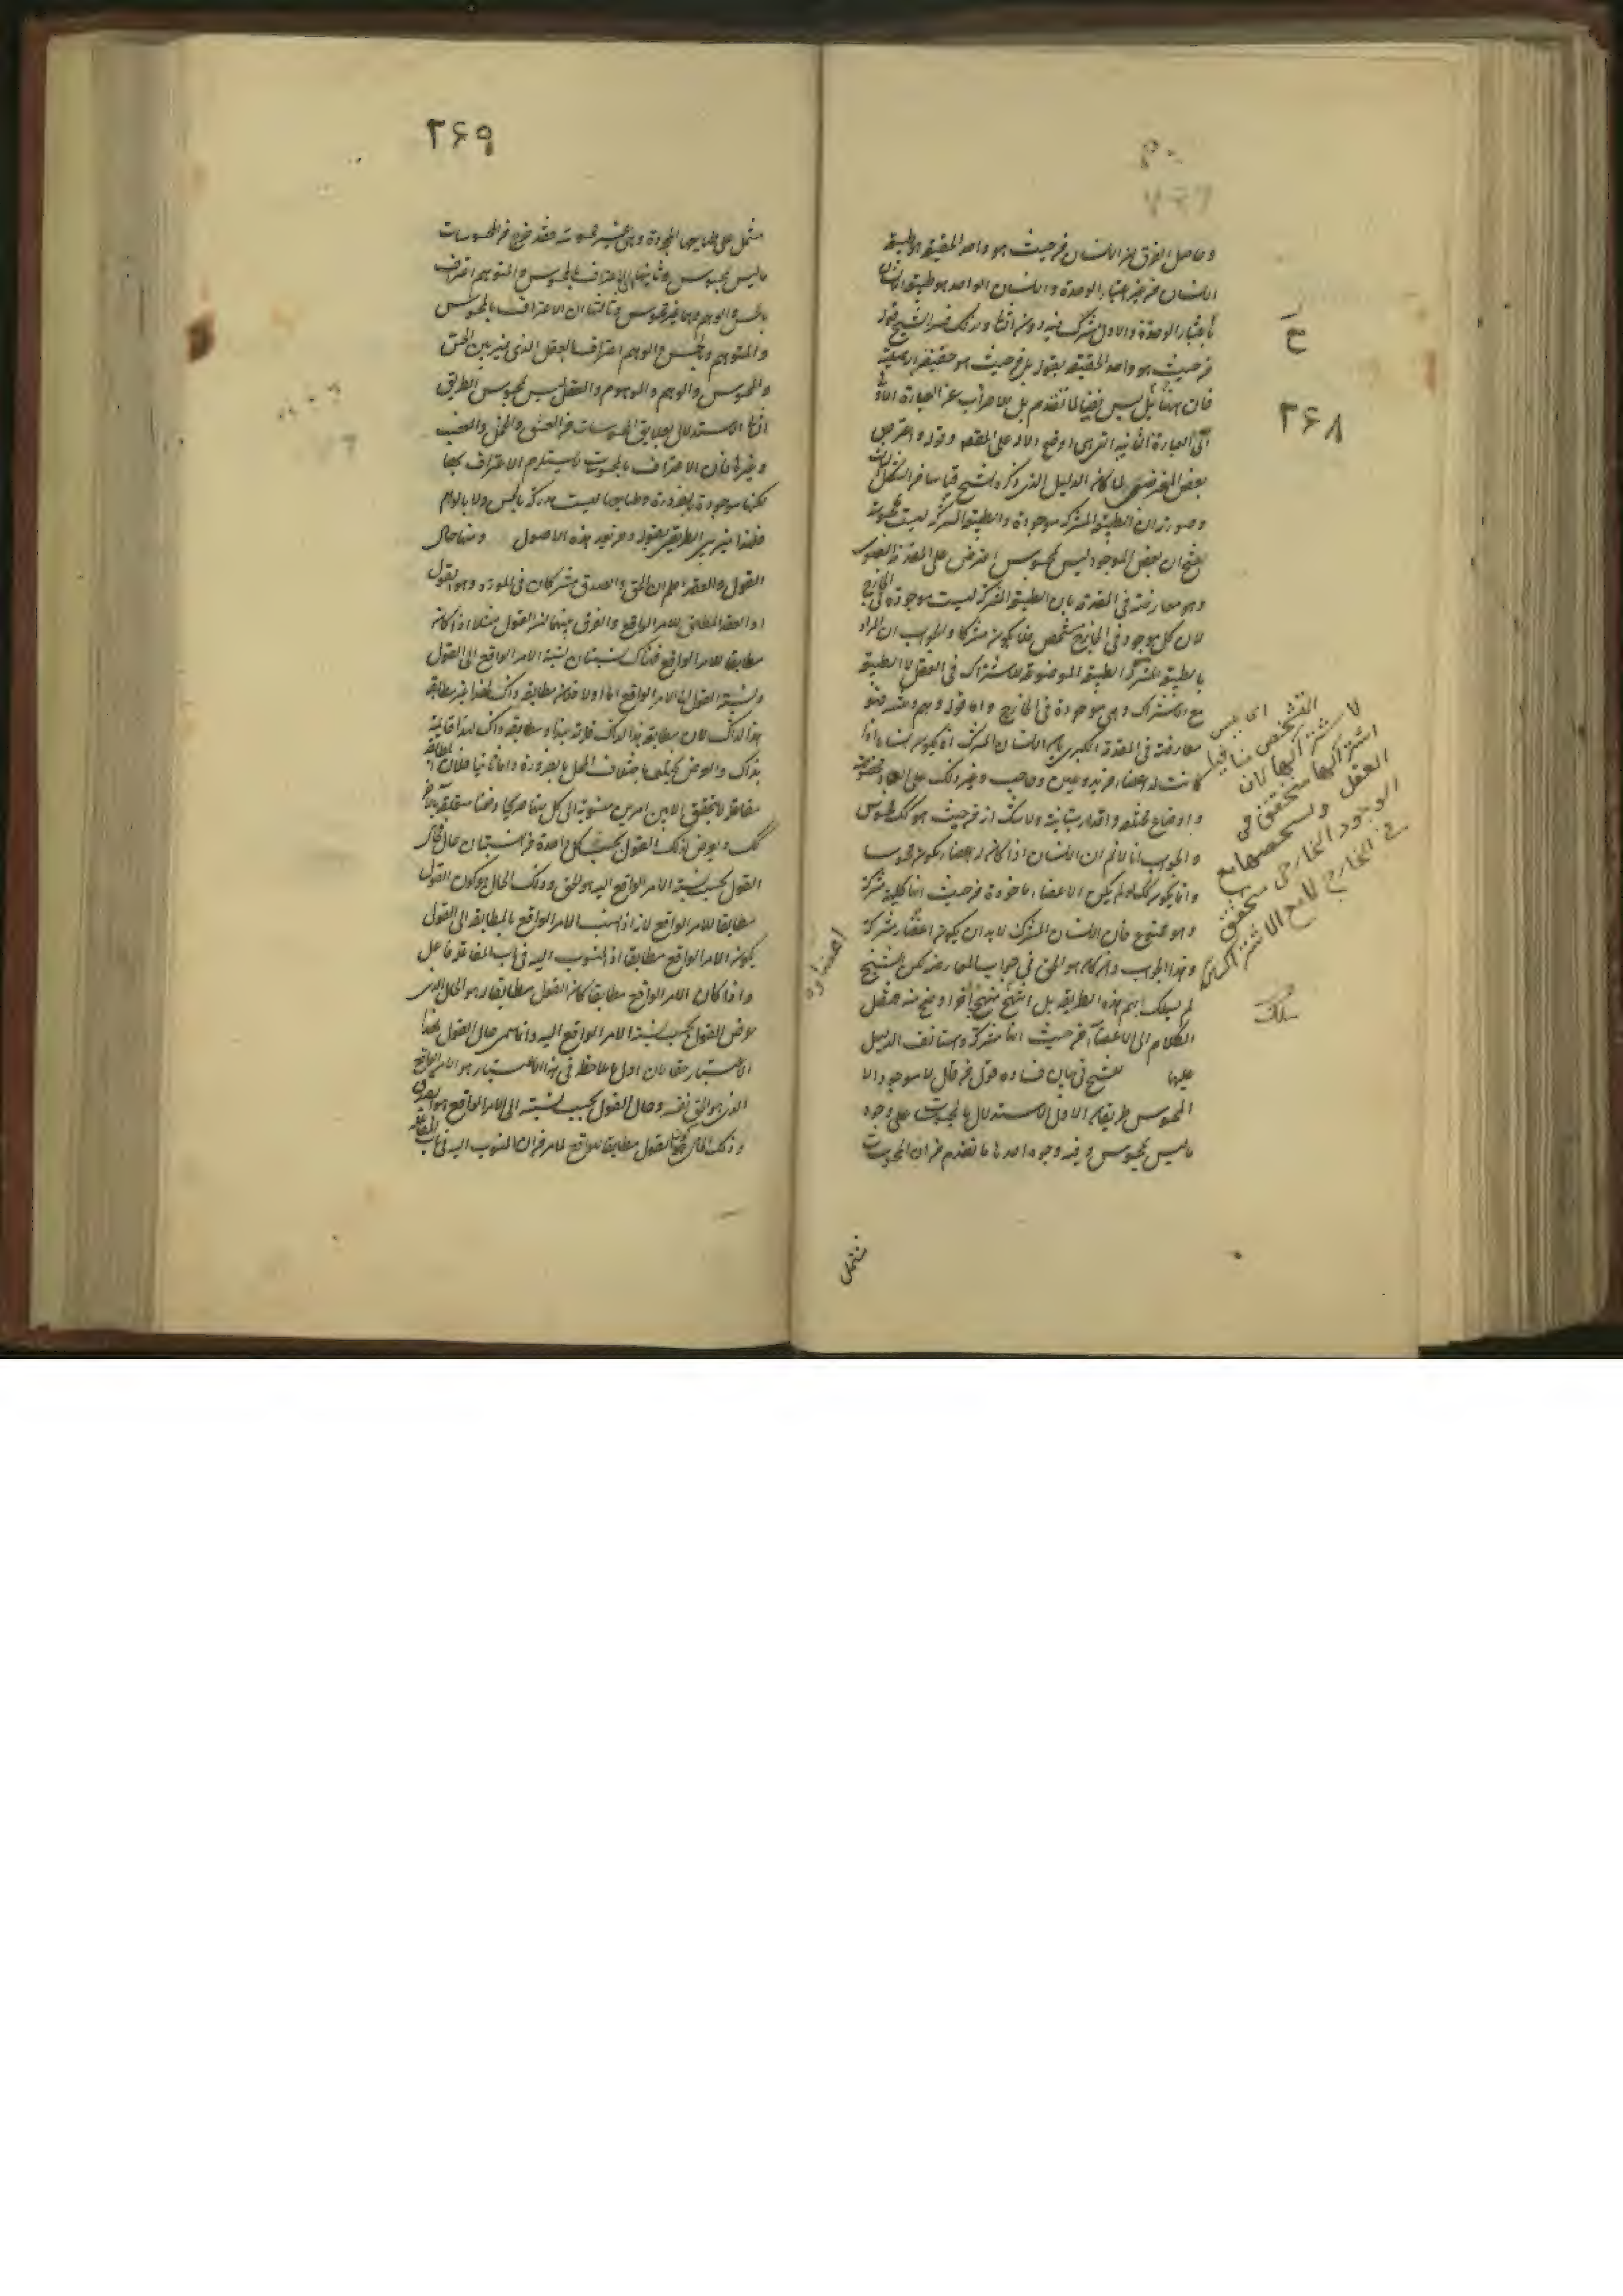 ٣۶٨
وحاصل الفرق ان الانسان من حيث هو واحد الحقيقة هو طبيعة
الانسان من غير اعتبار الوحدة والانسان الواحد هو طبيعة الانسان
باعتبار الوحدة والاول مشترك فيه دون الثانى ولذلك فسر الشيخ قوله
من حيث هو واحد الحقيقة بقوله بل من حيث هو حقيقته الاصلية
فان هذا بل ليس نفيا لما تقدم بل للاضراب عن العبارة الاولى
الى العبارة الثانية التى هى اوضح دلالة على المقصود قوله واعترض
بعض المعترضين لما كان الدليل الذى ذكره الشيخ قياسا من الشكل الثالث
وصورته ان الطبيعة المشتركة موجودة والطبيعة المشتركة ليست بمحسوسة
ينتج ان بعض الموجود ليس بمحسوس اعترض على المقدمة الصغرى
وهو معارضة فى المقدمة بان الطبيعة المشتركة ليست موجودة فى الخارج
لان كل موجود فى الخارج متشخص فلا يكون مشتركا والجواب ان المراد
بالطبيعة المشتركة الطبيعة الموضوعة للاشتراك فى العقل لا الطبيعة
مع الاشتراك وهى موجودة فى الخارج واما قوله وهم وتنبيه فهو
معارضة فى المقدمة الكبرى بان الانسان المشترك انما يكون انسانا اذا
كانت له اعضاء من يد وعين وحاجب وغير ذلك على ابعاد مخصوصة
واوضاع مختلفة واقدار متباينة ولا شك انه من حيث هو كذلك محسوس
والجواب انا لا نم ان الانسان اذا كان له اعضاء يكون محسوسا
وانما يكون كذلك لو لم يكن الاعضاء ماخوذة من حيث انها كلية مشتركة
وهو ممنوع فان الانسان المشترك لا بد ان يكون اعضاؤه مشتركة
وهذا الجواب وان كان هو الحق فى جواب المعارضة لكن الشيخ
لم يسلك بهم هذه الطريقة بل انتهج منهجا آخر اوضح منه فنقل
الكلام الى الاعضاء من حيث انها مشتركة واستانف الدليل
عليها للشيخ فى بيان فساد قول من قال لا موجود الا
المحسوس طريقان الاول الاستدلال بالمحسوسات على وجود
ما ليس بمحسوس وفيه وجوه احدها ما تقدم من ان المحسوسات
اى ليس
التشخص منافيا
لاشتراكها لان
اشتراكها متحقق فى
العقل وتشخصها مع
الوجود الخارجى متحقق
فى الخارج لا مع الاشتراك
اعضاؤه
يسلك
تشتمل
٣۶٩
تشتمل على طبايعها المجردة وهى غير محسوسة فقد خرج من المحسوسات
ما ليس بمحسوس وثانيها ان الاعتراف بالمحسوس والمتوهم اعتراف
بالحس والوهم وهما غير محسوس وثالثها ان الاعتراف بالمحسوس
والمتوهم وبالحس والوهم اعتراف بالعقل الذى يميز بين الحس
والمحسوس والوهم والموهوم والعقل ليس بمحسوس الطريق
الثانى الاستدلال بعلايق المحسوسات من العشق والخجل والغضب
وغيرها فان الاعتراف بالمحسوسات يستلزم الاعتراف بها
لكنها موجودة بالضرورة وطبايعها ليست مدركة بالحس ولا بالوهم
القول والعقد اعلم ان الحق والصدق مشتركان فى المورد وهو القول
او العقد المطابق للامر الواقع والفرق بينهما ان القول مثلا اذا كان
مطابقا للامر الواقع فهناك نسبتان نسبة الامر الواقع الى القول
ونسبة القول الى الامر الواقع اما اولا فلان مطابقة ذاك لهذا غير مطابقة
هذا لذاك لان مطابقة هذا لذاك قائمة بهذا ومطابقة ذاك لهذا قائمة
بذاك والعرض يختلف باختلاف المحل بالضرورة واما ثانيا فلان المطابقة
مفاعلة لا يتحقق الا بين امرين منسوبة الى كل منهما صريحا وضمنا متعلقة بالآخر
كك ويعرض لذلك القول بحسب كل واحدة من النسبتين حال فحال
القول بحسب نسبة الامر الواقع اليه هو الحق وذلك الحال هو كون القول
مطابقا للامر الواقع لانه اذا نسب الامر الواقع بالمطابقة الى القول
يكون الامر الواقع مطابقا اذ المنسوب اليه فى باب المفاعلة فاعل
واذا كان الامر الواقع مطابقا كان القول مطابقا وهو الحال الذى
عرض القول بحسب نسبة الامر الواقع اليه وانما سمى حال القول بهذا
الاعتبار حقا لان اول ما يلاحظ فى هذا الاعتبار هو الامر الواقع
الذى هو الحق نفسه وحال القول بحسب نسبته الى الامر الواقع هو الصدق
وذلك الحال كون القول مطابقا للواقع لما مر من ان المنسوب اليه فى باب المفاعلة